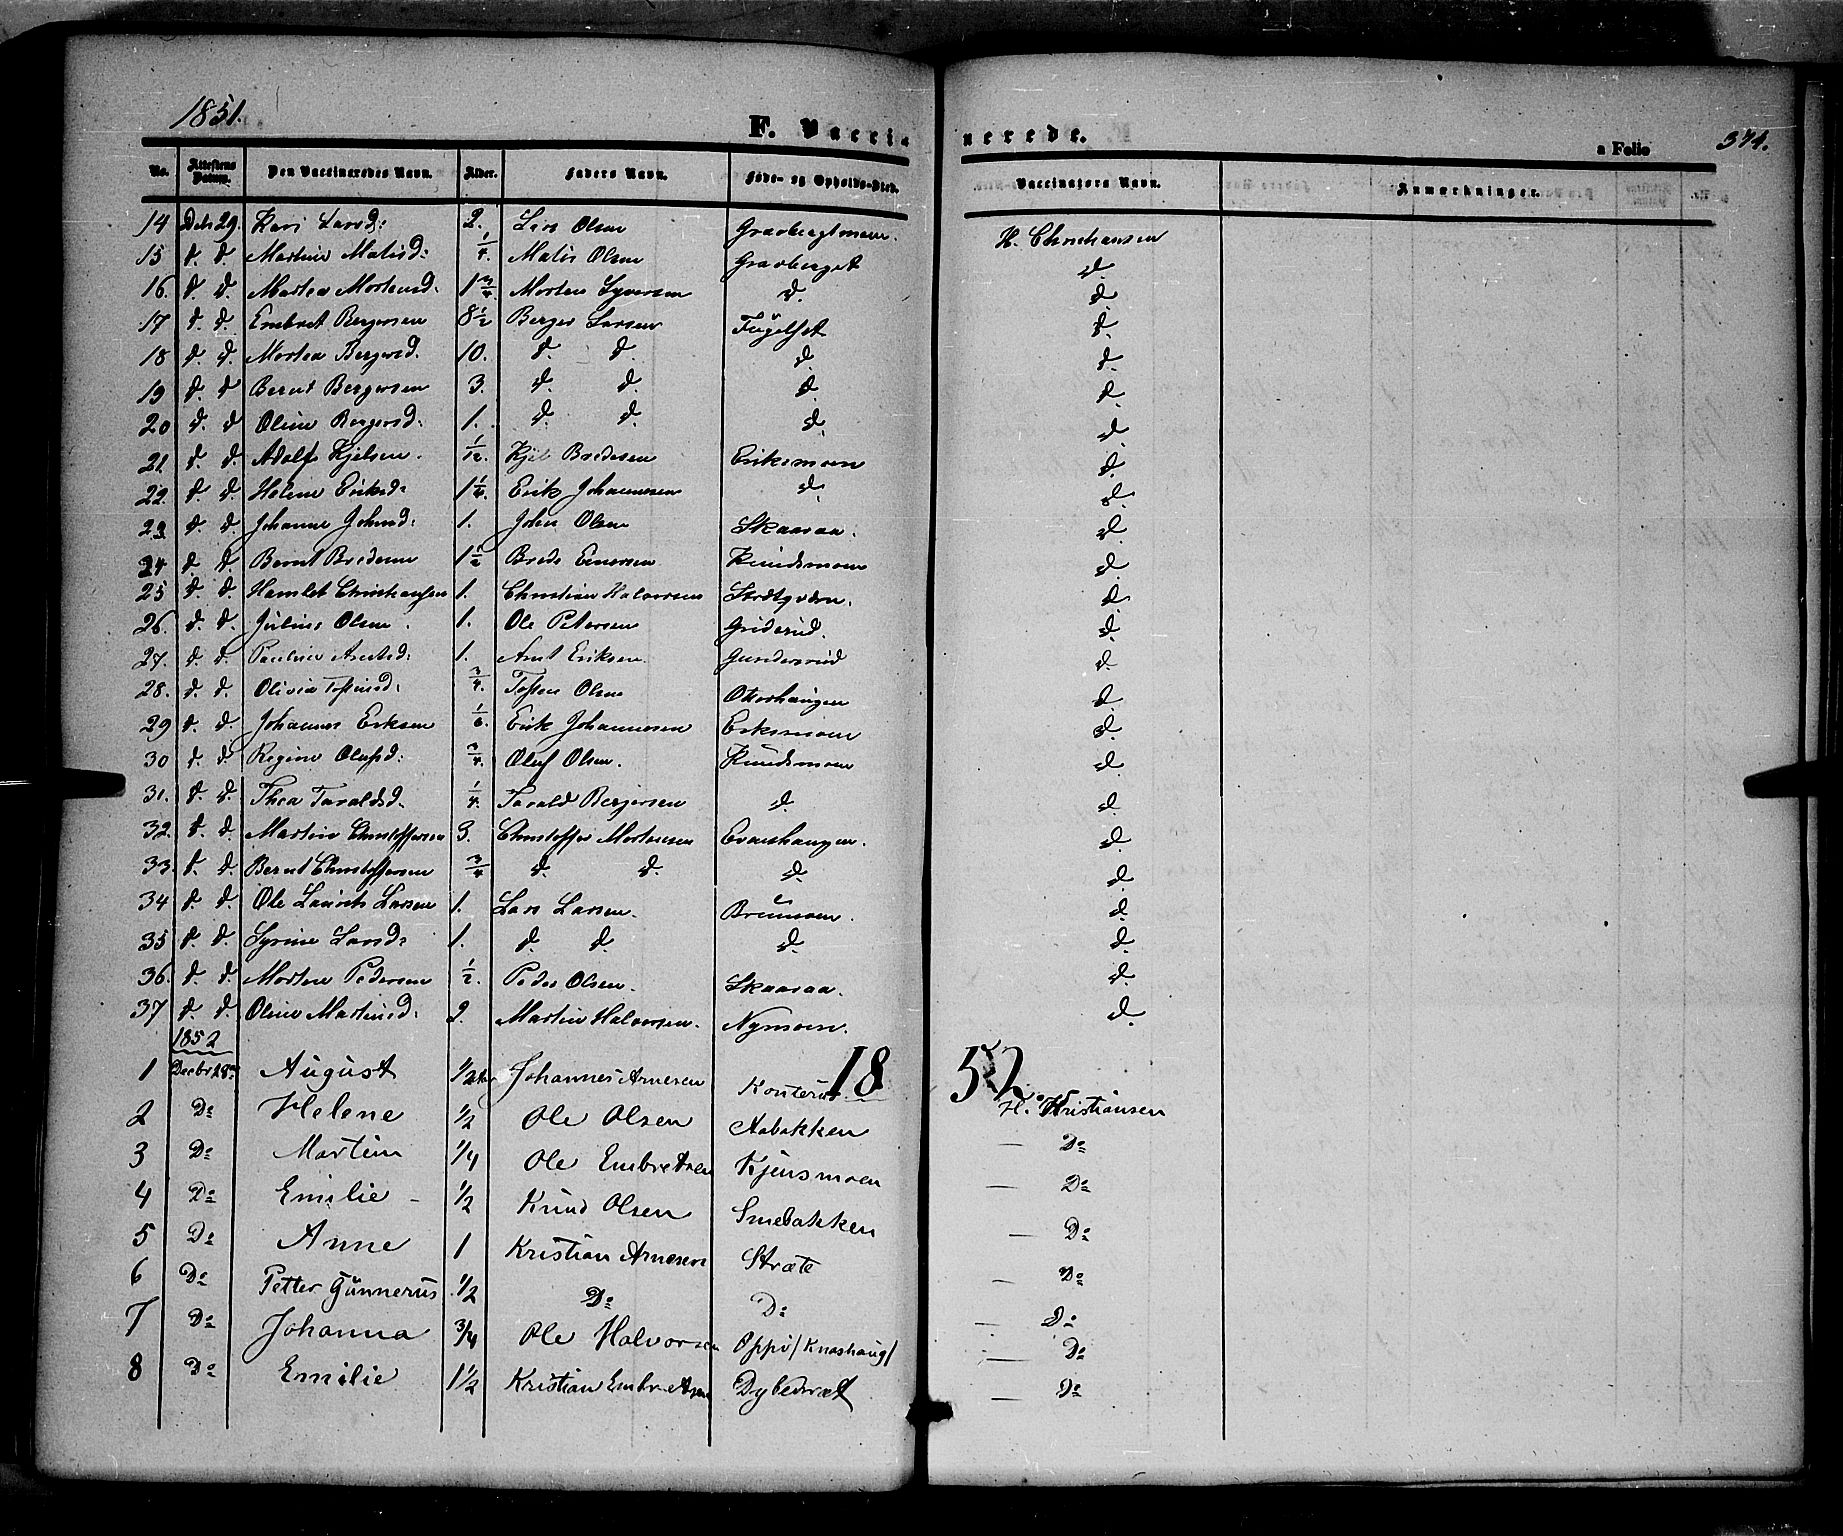 1851.
F. Vaccinerede.
a Folio 374.
No. Attestens Datum. Den Vaccineredes Navn. Alder. Faders Navn. Føde- og Opholds-Sted. Vaccinators Navn. Anmærkninger.
14 Decbr 29. Kari Larsd: 2. Lars Olsen Gravbergtmoen. H. Christiansen
15 d. d. Martine Matisd: 1/4 Matis Olsen Gravberget d.
16. d. d. Marthea Mortensd. 1 3/4. Morten Syversen d. d.
17 d. d. Embret Bergersen 8 1/2 Berger Larsen Fuglset d.
18 d. d. Morten Bergersd. 10. d. d. d. d.
19 d. d Bernt Bergersen 3. d. d. d. d.
20 d. d Oline Bergersd: 1. d. d. d. d.
21. d. d. Adolf Kjelsen. 1/12. Kjel Bredesen Eriksmoen d.
22. d. d. Helene Eriksd: 1 1/6. Erik Johannesen d. d.
23. d. d. Johanne Johnsd: 1. John Olsen Skaaraa. d.
24 d. d. Bernt Bredesen 1 1/2 Brede Einersen Knudsmoen d.
25 d. d. Hamlet Christiansen 1. Christian Halvorsen d.
26. d. d. Julius Olsen. 1. Ole Petersen Griderud. d.
27. d. d. Pauline Arntsd: 1. Arnt Eriksen. Gundersrud d.
28. d. d. Olivia Tostensd: 3/4. Tosten Olsen Otterhaugen d.
29 d. d. Johannes Eriksen 1/6. Erik Johannesen Eriksmoen d.
30 d. d. Regine Olufsd: 3/4. Oluf Olsen. Knudsmoen d.
31. d. d. Thea Taraldsd. 1/4. Tarald Bergersen d. d.
32. d. d. Martin Christoffersen 3. Christoffer Mortensen Evenhaugen. d.
33. d. d. Bernt Christoffersen 3/4 d. d. d. d.
34 d. d. Ole Laurits Larsen 1. Lars Larsen. Brumoen. d.
35 d. d. Syrine Larsd: 1. d. d. d. d.
36. d. d. Morten Pedersen 1/2. Peder Olsen. Skaaraa. d.
37 d. d. Oline Martinsd: 2. Martin Halvorsen. Nymoen. d.
1852
1852
1 Decbr 28de August 1/2 Aar Johannes Arnesen Konterud H. Kristiansen
2 Do Helene 1/2 Ole Olsen Aabakken — Do
3 Do Martin 1/4 Ole Embretsen Kjensmoen — Do
4 Do Emilie - 1/2 Knud Olsen Smebakken — Do
5 Do Anne 1 Kristian Arnesen Stræte — Do
6 Do Petter Gunnerus 1/2 Do Do — Do
7 Do Johanna 3/4 Ole Halvorsen Oppi /Knashaug/ — Do
8 Do Emilie 1 1/2 Kristian Embretsen Dybedræt — Do